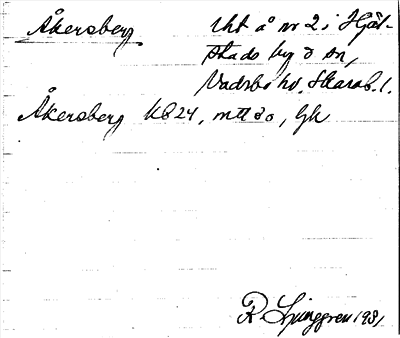 Åkersberg lht å nr 2 i Hjäl-
stads by o sn,
Vadsbo hd, Skarab. l.
Åkersberg KB 24, mtl do, Gk
R. Ljunggren 1981